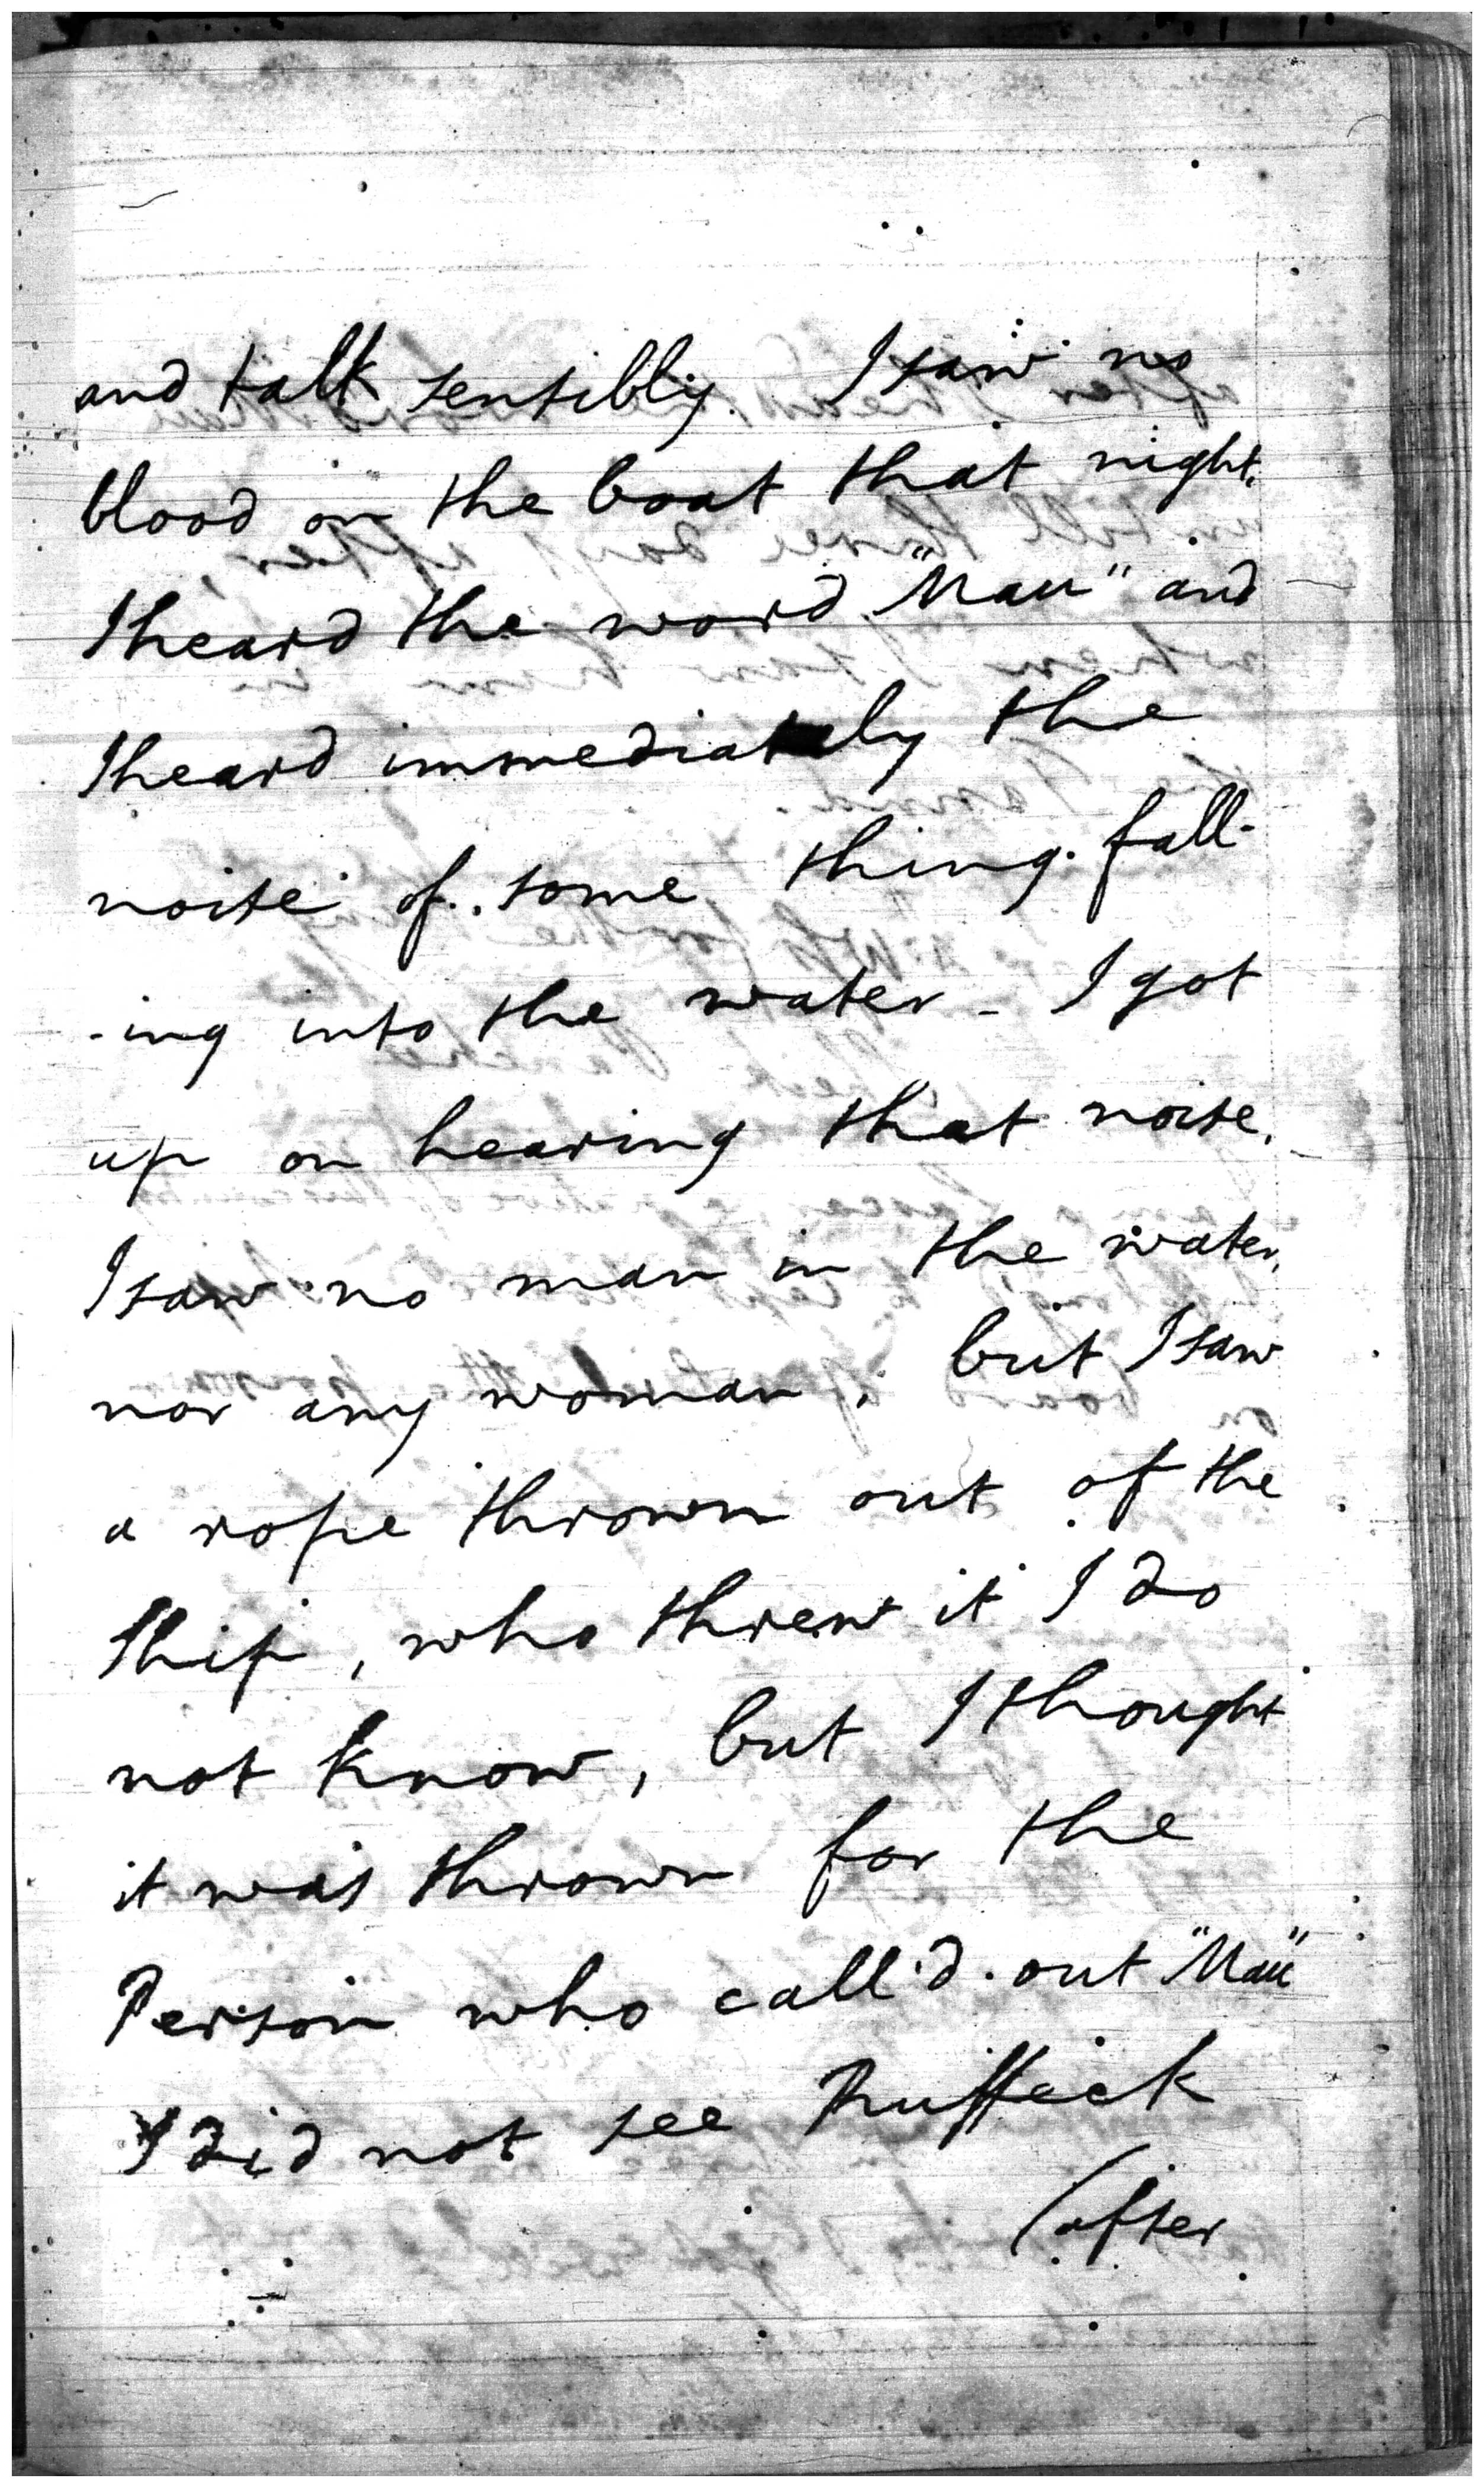 and talk sensibly. I saw no
blood on the boat that night.
I heard the word "Mau" and
I heard immediately the
noise of some thing fall-
-ing into the water - I got
up on hearing that noise.
I saw no man in the water,
nor any woman, but I saw
a rope thrown out of the
Ship, who threw it I do
not know, but I thought
it was thrown for the
Person who call'd out "Mau"
I did not see
(after